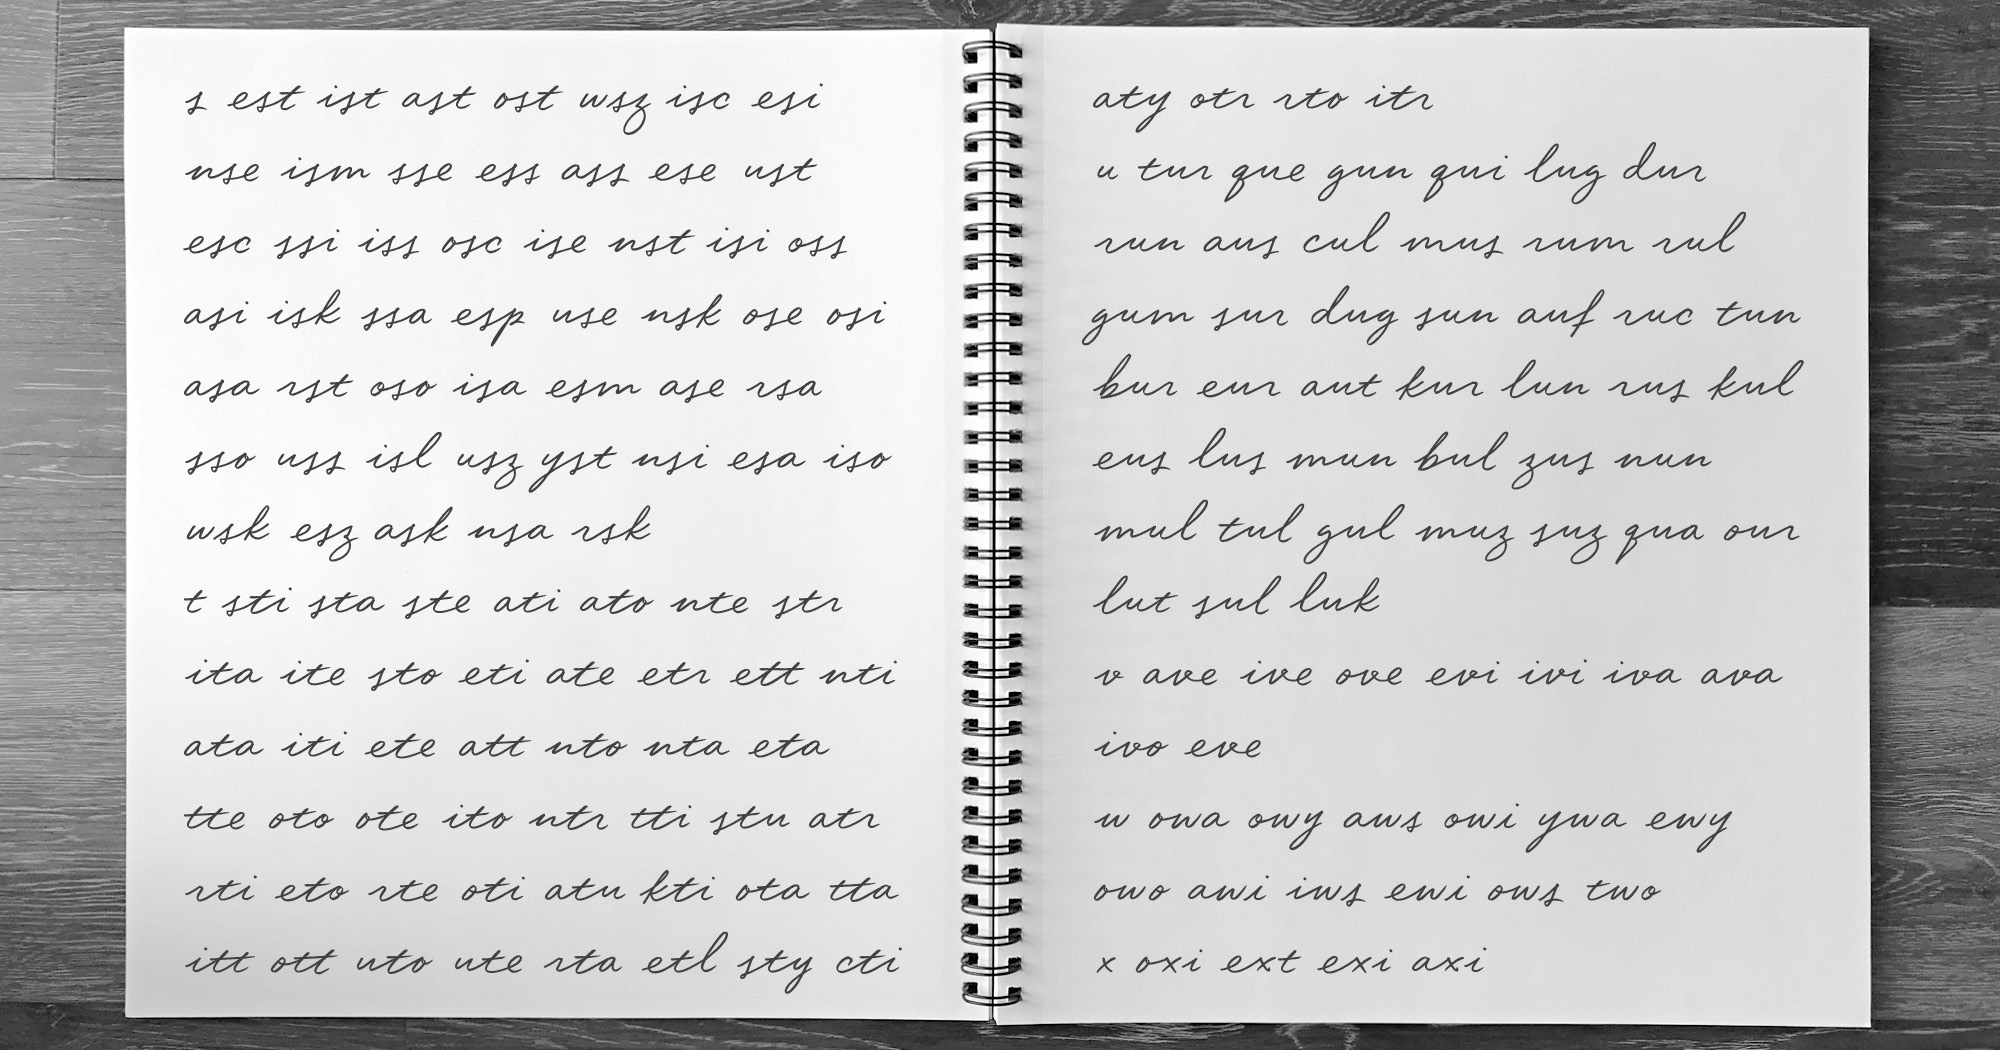 s est ist ast ost wsz isc esi
nse ism sse ess ass ese ust
esc ssi iss osc ise nst isi oss
asi isk ssa esp use nsk ose osi
asa rst oso isa esm ase rsa
sso uss isl usz yst nsi esa iso
wsk esz ask nsa rsk
t sti sta ste ati ato nte str
ita ite sto eti ate etr ett nti
ata iti ete att nto nta eta
tte oto ote ito ntr tti stu atr
rti eto rte oti atu kti ota tta
itt ott uto ute rta etl sty cti
aty otr rto itr
u tur que gun qui lug dur
run aus cul mus rum rul
gum sur dug sun auf ruc tun
bur eur aut kur lun rus kul
eus lus mun bul zus nun
mul tul gul muz suz qua our
lut sul luk
v ave ive ove evi ivi iva ava
ivo eve
w owa owy aws owi ywa ewy
owo awi iws ewi ows two
x oxi ext exi axi